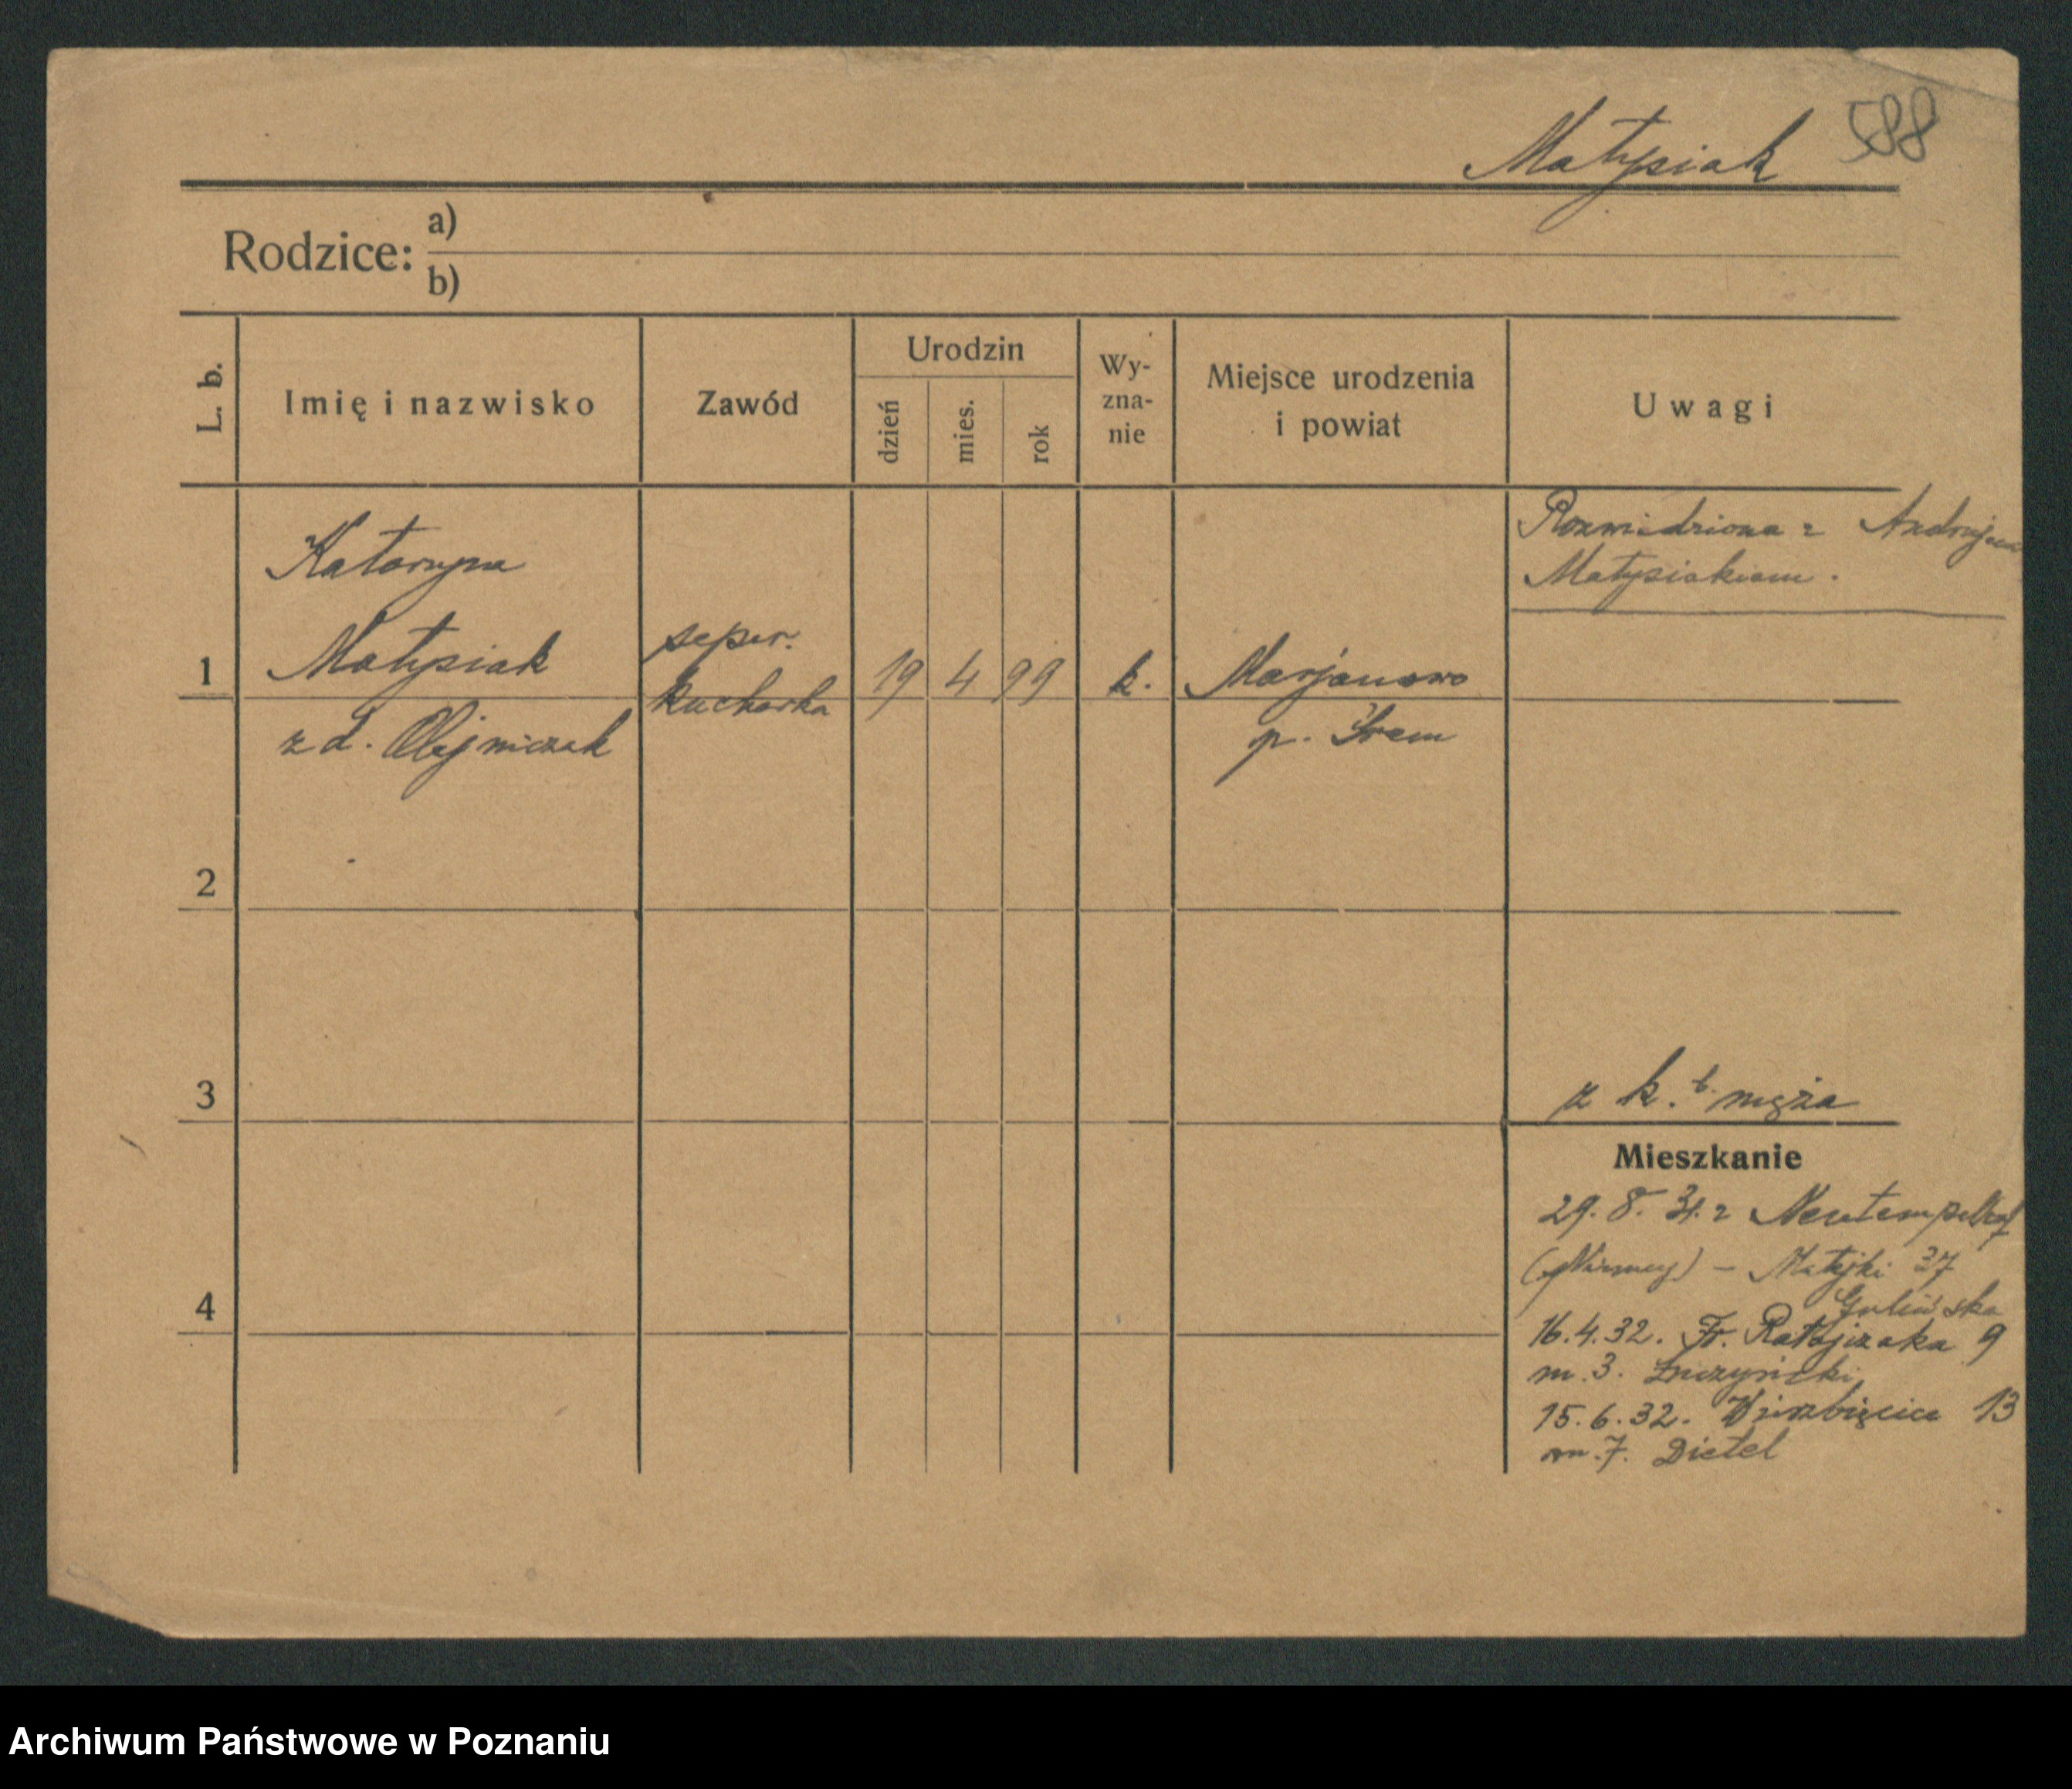 Matysiak 588
Rodzice: a)
b)
L. b.
Imię i nazwisko
Zawód
Urodzin
dzień
mies.
rok
Wy-
zna-
nie
Miejsce urodzenia
i powiat
Uwagi
Rozwiedziona z Andrzejem
Matysiakiem.
Katarzyna
1 Matysiak
z d. Olejniczak
separ.
kucharka
19 4 99 k.
Marjanowo
p. Śrem
2
3
z k. b. męża
Mieszkanie
29. 8. 31. z Neutempelhof
(Niemcy) – Matejki 37
Gulińska
4
16.4.32. Fr. Ratajczaka 9
m. 3.
15.6.32. Wierzbięcice 13
m. 7. Dietel
Archiwum Państwowe w Poznaniu